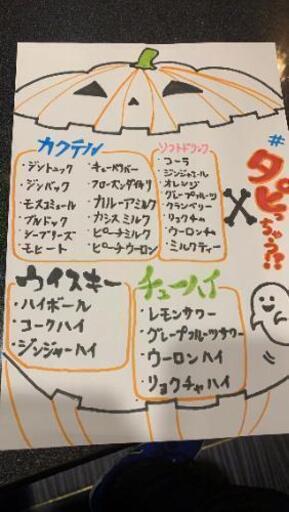 カクテル
・ジントニック
・ジンバック
・モスコミュール
・ブルドック
・シーブリーズ
・モヒート
・キューバリバー
・フローズンダイキリ
・カルーアミルク
・カシスミルク
・ピーチミルク
・ピーチウーロン
ソフトドリンク
・コーラ
・ジンジャエール
・オレンジ
・グレープフルーツ
・クランベリー
・リョクチャ
・ウーロンチャ
・ミルクティー
#タピっちゃう!?
ウイスキー
・ハイボール
・コークハイ
・ジンジャーハイ
チューハイ
・レモンサワー
・グレープフルーツサワー
・ウーロンハイ
・リョクチャハイ